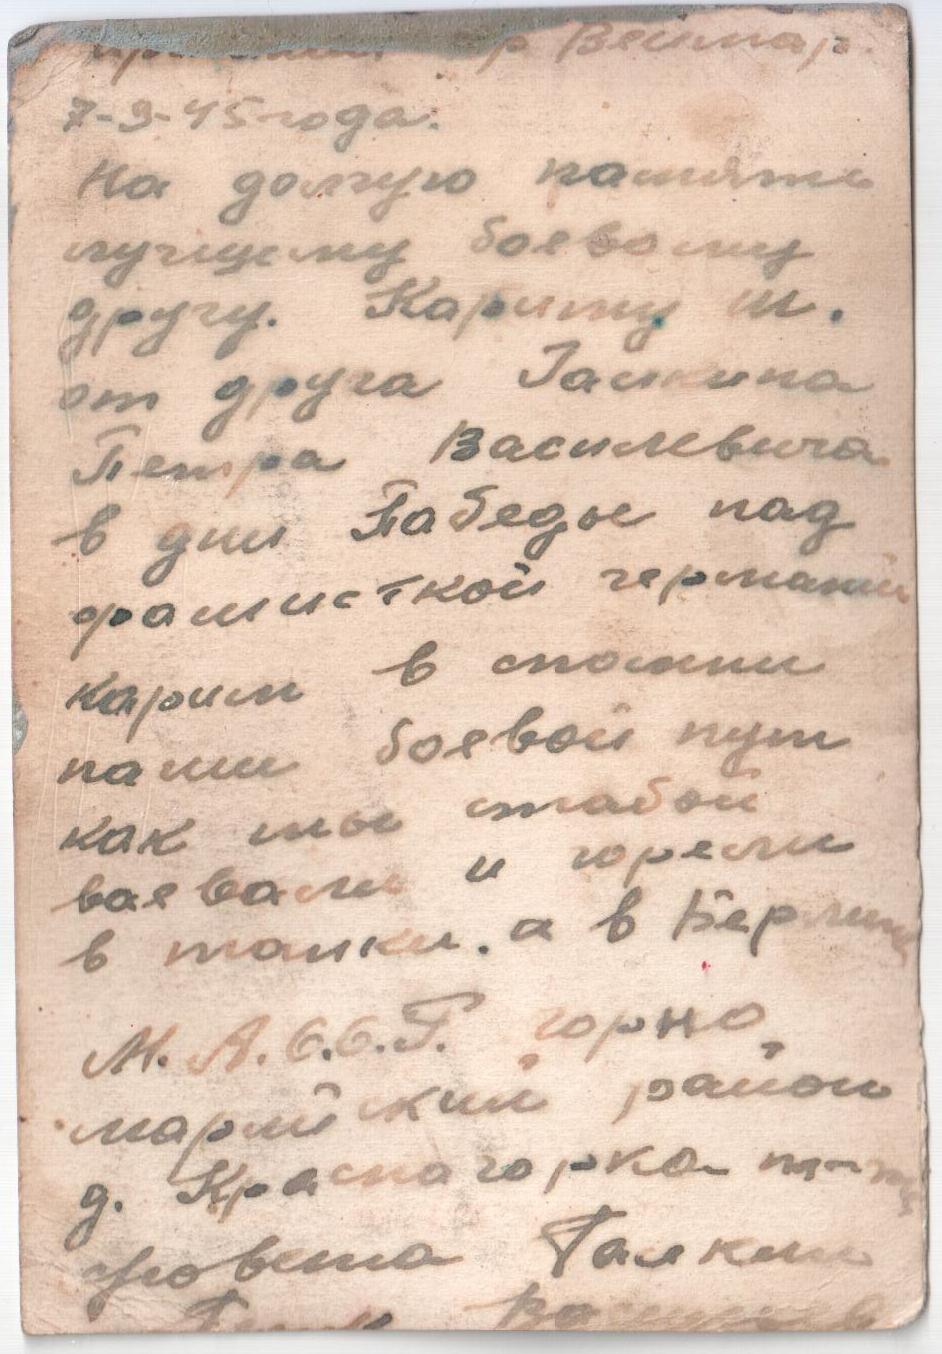 гр Веймар.
7-9-45 года.
На долгую память
лучщему боевому
другу. Кариму Ш.
от друга Галкина
Петра Василевича
в дни Пабеды над
фашисткой германии
карим в спомни
наш боевой пут
как мы стабой
воевали и горели
в танки. а в Берлине
М. А. С.С.Р. горно
марийский район
д. Краснагорка
Галкин